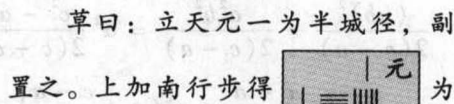 草曰：立天元一为半城径，副
置之。上加南行步得 元 为